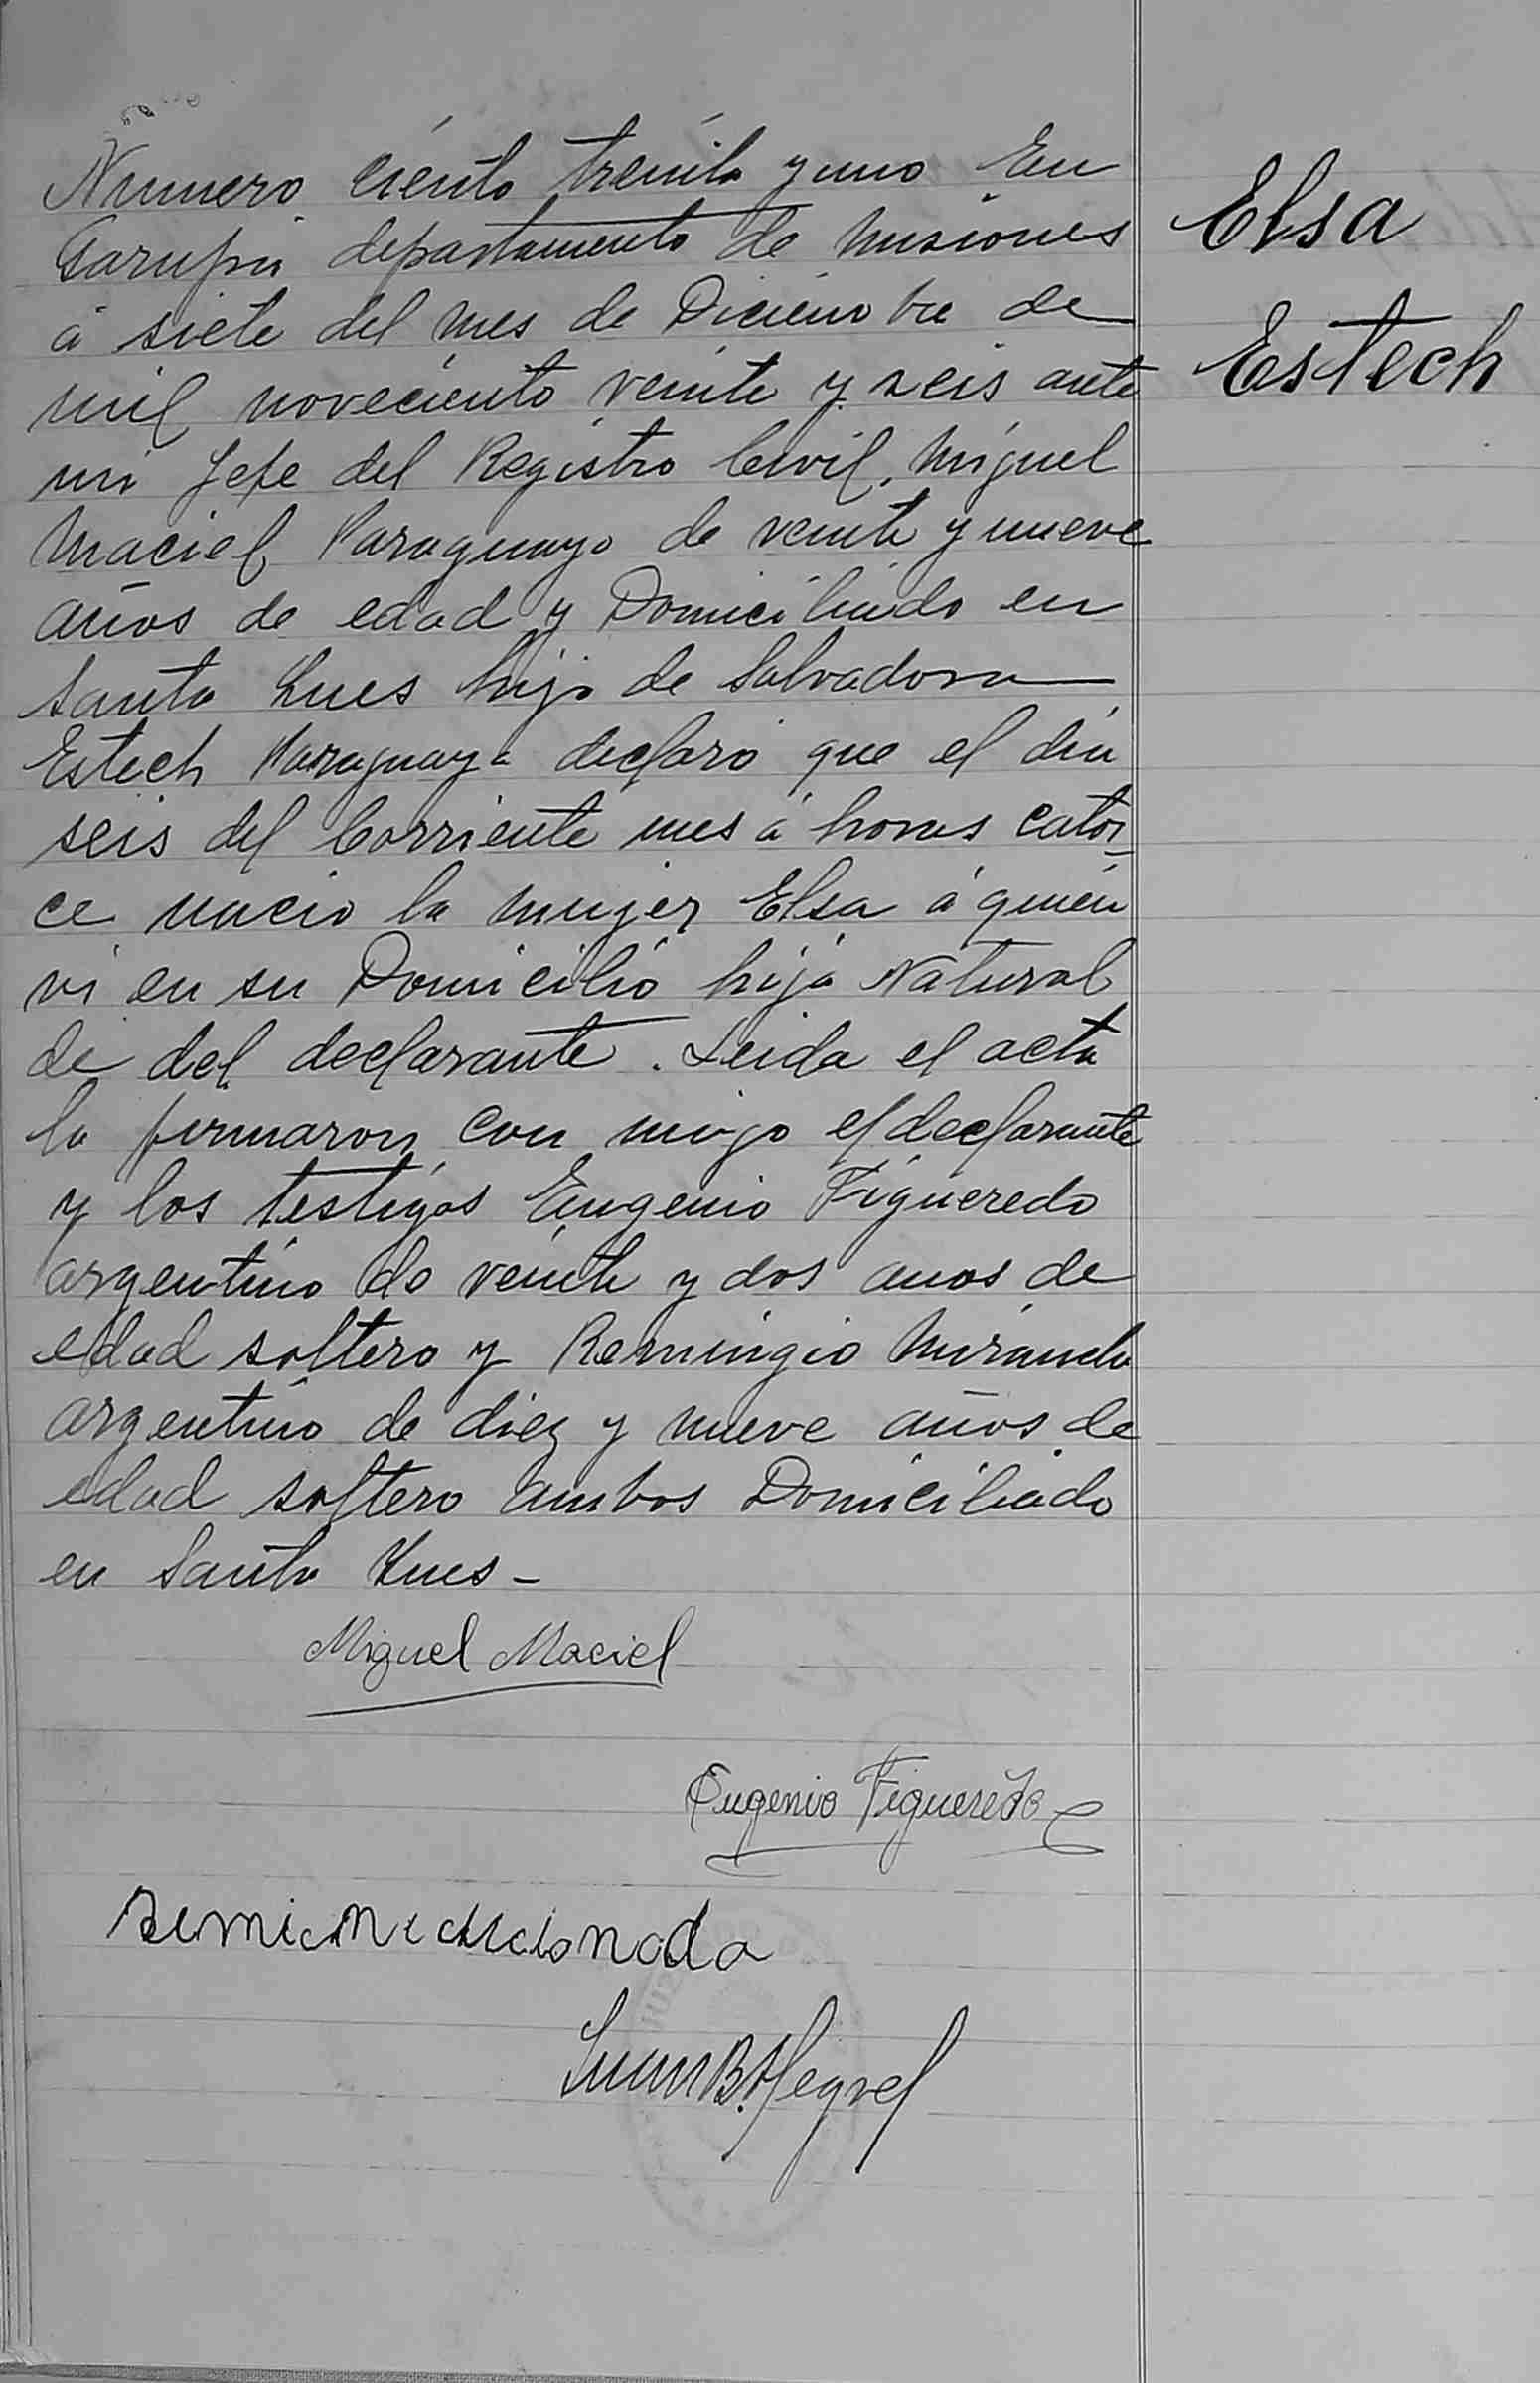 Numero ciento treinta y uno En
Garupá departamento de Misiones
á siete del mes de Diciembre de
mil noveciento veinte y seis ante
mi Jefe del Registro Civil, Miguel
Maciel Paraguayo de veinte y nueve
años de edad y Domiciliado en
Santa Ynes hijo de Salvadora
Estech Paraguaya declaró que el dia
seis del Corriente mes á horas cator-
ce nacio la mujer Elsa á quien
vi en su Domicilio hija Natural
de del declarante. Leida el acta
la firmaron con migo el declarante
y los testigos Eugenio Figueredo
argentino de veinte y dos anos de
edad soltero y Remingio Miranda
argentino de diez y nueve años de
edad soltero ambos Domiciliado
en Santa Ynes -
Miguel Maciel
Eugenio Figueredo
Juan B.
Elsa
Estech